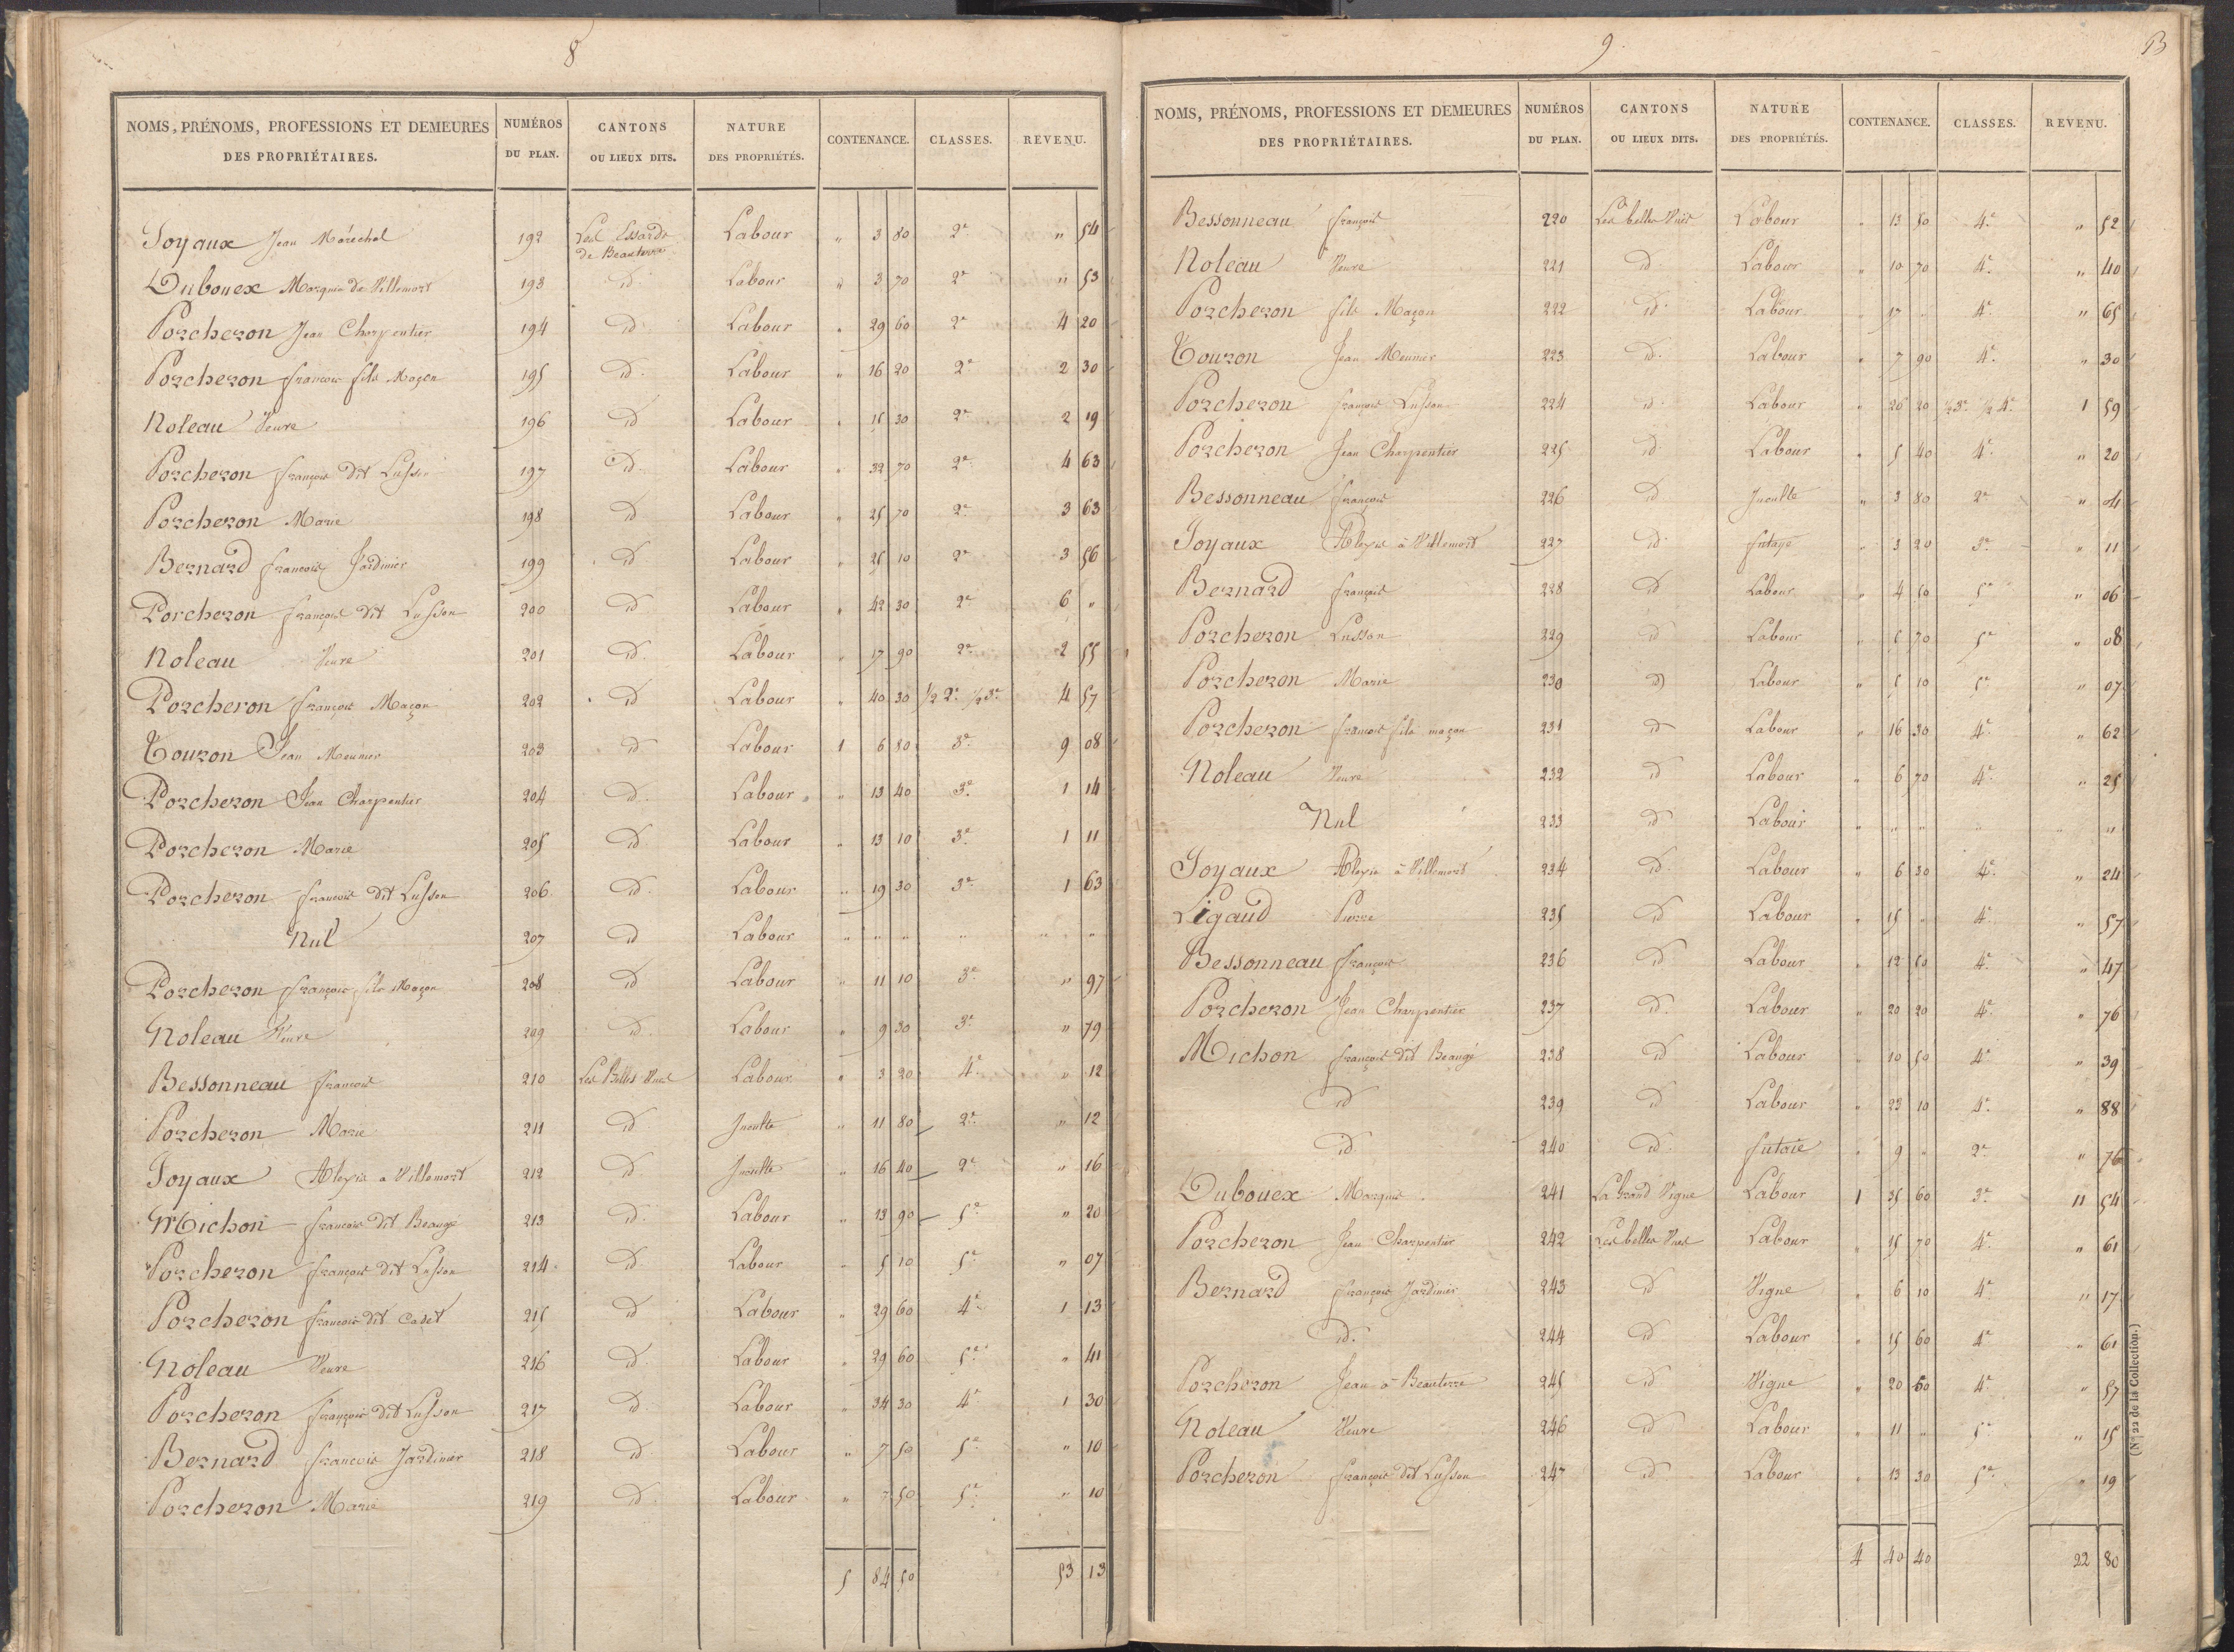 8
NOMS, PRÉNOMS, PROFESSIONS ET DEMEURES DES PROPRIÉTAIRES. NUMÉROS DU PLAN. CANTONS OU LIEUX DITS. NATURE DES PROPRIÉTÉS. CONTENANCE. CLASSES. REVENU.
Joyaux Jean Maréchal 192 Les Essards de Beauterre Labour " 3 80 2e " 54
Dubouex Marquis de Villemort 193 id Labour " 3 70 2e " 53
Porcheron Jean Charpentier 194 id Labour " 29 60 2e 4 20
Porcheron francois fils Maçon 195 id. Labour " 16 20 2e 2 30
Noleau Veuve 196 id Labour " 15 30 2e 2 19
Porcheron françois dit Lusson 197 id. Labour " 32 70 2e 4 63
Porcheron Marie 198 id Labour " 25 70 2e 3 63
Bernard francois Jardinier 199 id Labour " 25 10 2e 3 56
Porcheron françois dit Lusson 200 id Labour " 42 30 2e 6 "
Noleau Veuve 201 id. Labour " 17 90 2e 2 55
Porcheron françois Maçon 202 id Labour " 40 30 1/2 2e 1/2 3e 4 57
Touron Jean Meunier 203 id Labour 1 6 80 3e 9 08
Porcheron Jean Charpentier 204 id. Labour " 13 40 3e 1 14
Porcheron Marie 205 id. Labour " 13 10 3e 1 11
Porcheron francois dit Lusson 206 id. Labour " 19 30 3e 1 63
Nul 207 id Labour " " " " " "
Porcheron françois fils Maçon 208 id Labour " 11 10 3e " 97
Noleau Veuve 209 id. Labour " 9 30 3e " 79
Bessonneau francois 210 Les Belles Vues Labour " 3 20 4e " 12
Porcheron Marie 211 id Inculte " 11 80 2e " 12
Joyaux Alexis a Villemort 212 id Inculte " 16 40 2e " 16
Michon francois dit Beaugé 213 id. Labour " 13 90 5e " 20
Porcheron françois dit Lusson 214 id. Labour " 5 10 5e " 07
Porcheron francois dit Cadet 215 id Labour " 29 60 4e 1 13
Noleau Veuve 216 id. Labour " 29 60 5e " 41
Porcheron françois dit Lusson 217 id. Labour " 34 30 4e 1 30
Bernard francois Jardinier 218 id Labour " 7 50 5e " 10
Porcheron Marie 219 id. Labour " 7 50 5e " 10
5 84 50 53 13
9
NOMS, PRÉNOMS, PROFESSIONS ET DEMEURES DES PROPRIÉTAIRES. NUMÉROS DU PLAN. CANTONS OU LIEUX DITS. NATURE DES PROPRIÉTÉS. CONTENANCE. CLASSES. REVENU.
Bessonneau françois 220 Les belles Vues Labour " 13 50 4e " 52
Noleau Veuve 221 id. Labour " 10 70 4e " 40
Porcheron fils Maçon 222 id. Labour " 17 " 4e " 65
Touron Jean Meunier 223 id. Labour " 7 90 4e " 30
Porcheron françois Lusson 224 id. Labour " 26 20 1/2 3e 1/2 4e 1 59
Porcheron Jean Charpentier 225 id Labour " 5 40 4e " 20
Bessonneau françois 226 id Inculte " 3 80 2e " 04
Joyaux Alexis à Villemort 227 id. futaye " 3 20 3e " 11
Bernard françois 228 id Labour " 4 50 5e " 06
Porcheron Lusson 229 id Labour " 5 70 5e " 08
Porcheron Marie 230 id Labour " 5 10 5e " 07
Porcheron francois fils maçon 231 id Labour " 16 30 4e " 62
Noleau Veuve 232 id Labour " 6 70 4e " 25
Nul 233 id Labour " " " " " "
Joyaux Alexis à Villemort 234 id. Labour " 6 30 4e " 24
Ligaud Pierre 235 id Labour " 15 " 4e " 57
Bessonneau françois 236 id Labour " 12 50 4e " 47
Porcheron Jean Charpentier 237 id. Labour " 20 20 4e " 76
Michon françois dit Beaugé 238 id Labour " 10 50 4e " 39
id 239 id Labour " 23 10 4e " 88
id. 240 id. futaie " 9 " 2e " 76
Dubouex Marquis 241 La Grand Vigne Labour 1 35 60 3e 11 54
Porcheron Jean Charpentier 242 Les belles Vues Labour " 15 70 4e " 61
Bernard françois Jardinier 243 id Vigne " 6 10 4e " 17
id. 244 id Labour " 15 60 4e " 61
Porcheron Jean à Beauterre 245 id Vigne " 20 60 4e " 57
Noleau Veuve 246 id Labour " 11 " 5e " 15
Porcheron françois dit Lusson 247 id Labour " 13 30 5e " 19
4 40 40 22 80
(N° 22 de la Collection.)